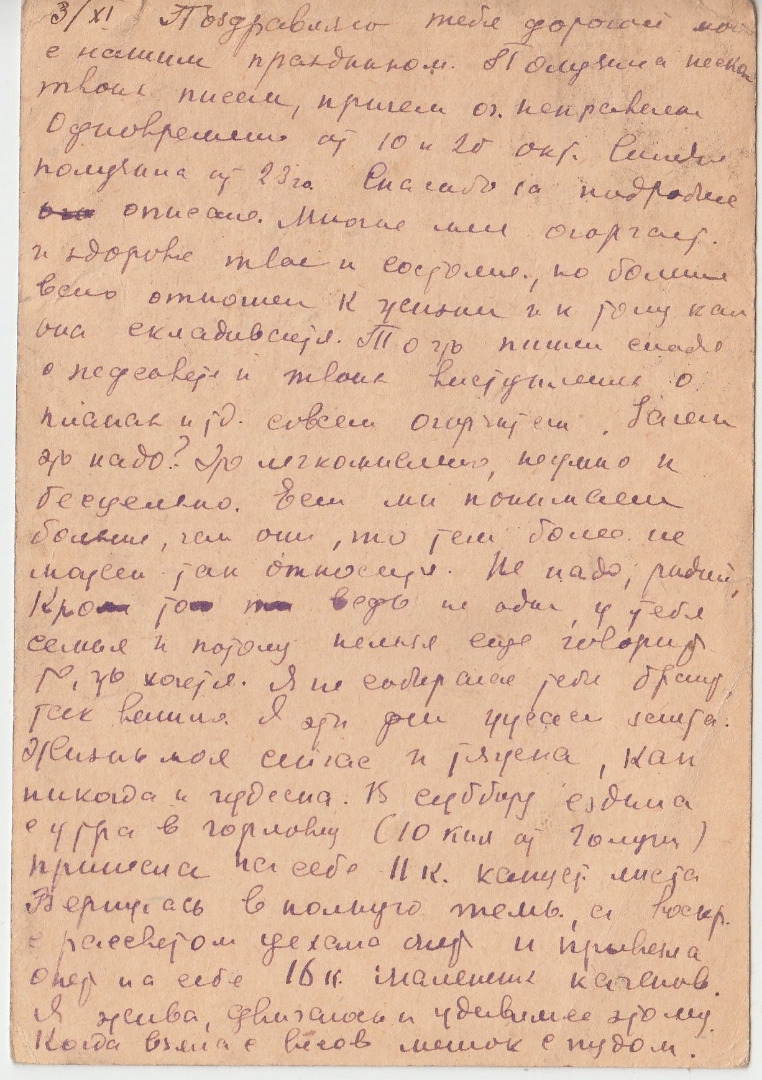 3/XI Поздравляю тебя дорогой мой
с нашим праздником. Получила неско
твоих писем, причем оч. неправильн
Одновременно от 10 и 20 окт. Сегодня
получила от 23го. Спасибо за подробные
описание. Многое мне огорчает.
и здоровье твое и состояние, но больше
всего отношен к жизни и к тому как
она складывается. То что пишешь
о педсовете и твоих выступлениях о
планах и тд. совсем огорчител. Зачем
это надо? Это легкомысленно, неумно и
бесцельно. Если ты понимаешь
больше, чем они, то тем более не
можешь так относится. Не надо, родной,
Кроме того ведь не один, у тебя
семья и потому нельзя еще говорить
то, что хочется. Я не собиралась тебя бранить
так вышло. Я эти дни чудесно
Жизнь моя сейчас и тяжела, как
никогда и чудесна. В субботу ездила
с утра в горловку (10 км от )
принесла на себе 11 к. капуст. листа
Вернулась в полную темь, а воскр.
с рассветом уехала опять и привезла
опять на себе 16 к. маленьких качанов.
Я жива, двигалась и удивляюсь этому.
Когда взяла с весов мешок с пудом.